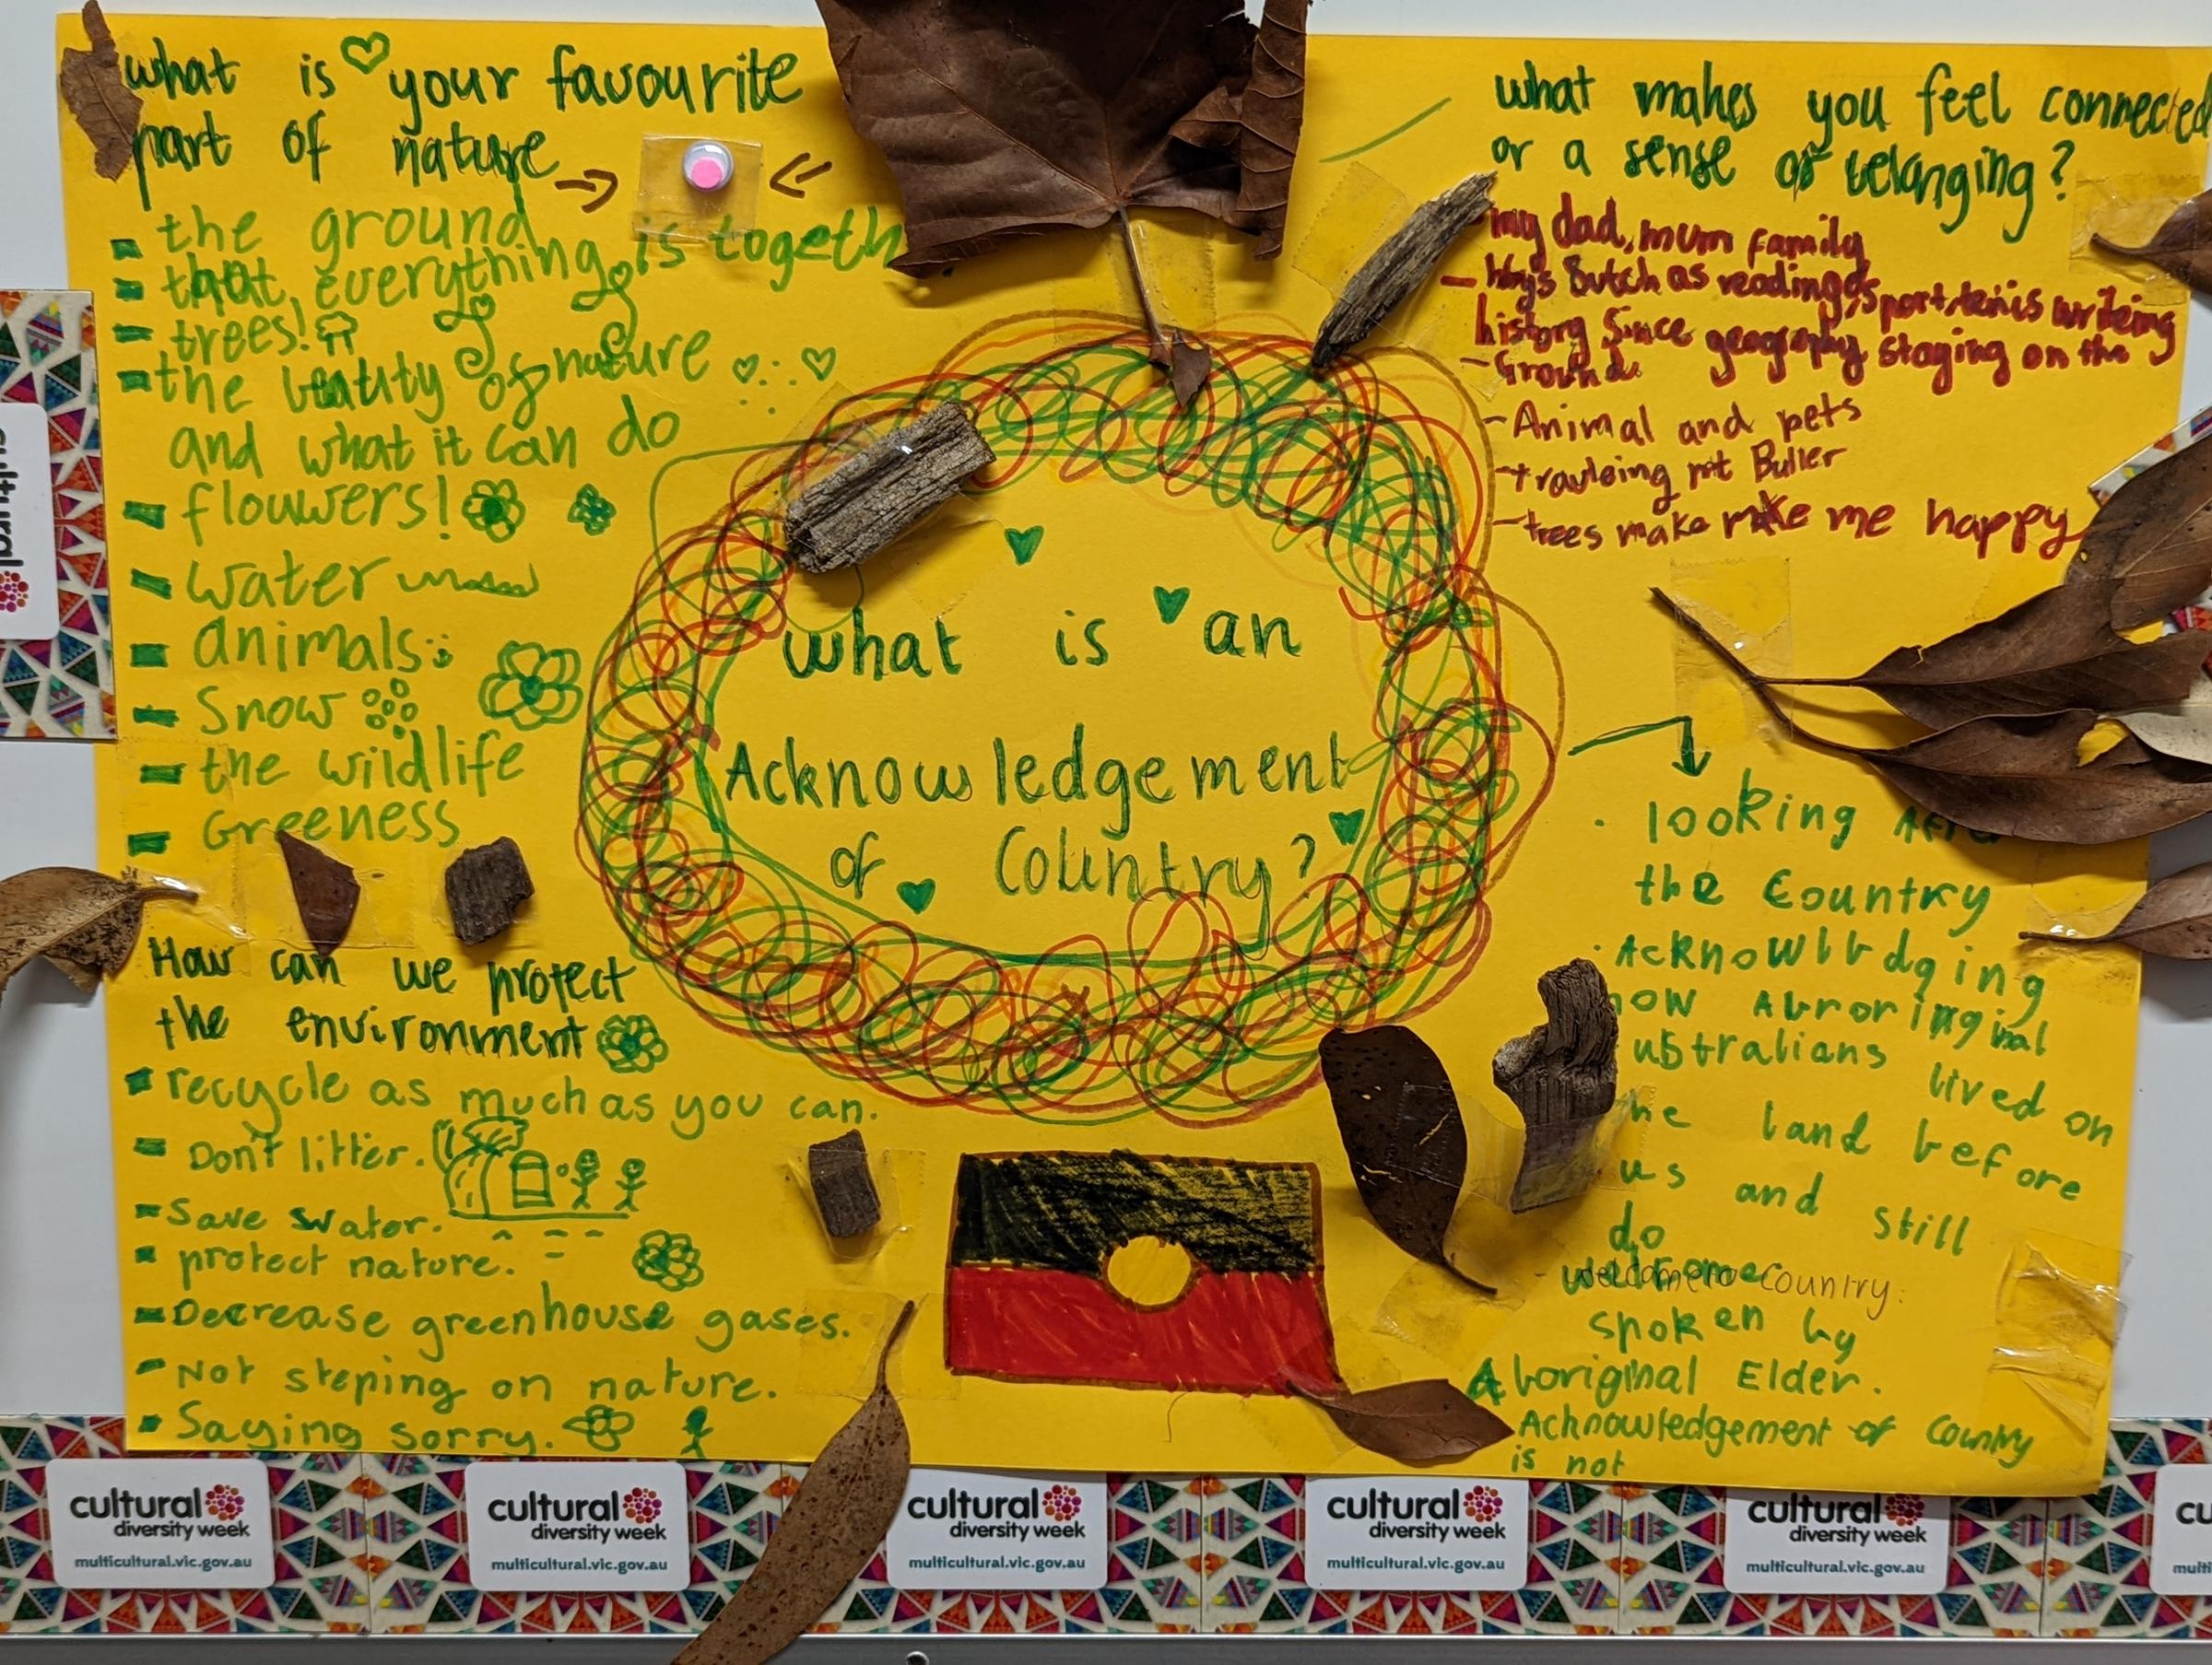 what is your favourite
part of nature
the ground
that everything is togeth
trees!
the beauty of nature
and what it can do
flouwers!
water
animals
Snow
the wildlife
Greeness
How can we protect
the environment
recycle as much as you can.
Don't litter.
Save water.
protect nature.
Decrease greenhouse gases.
Not steping on nature.
Saying sorry.
what is an
Acknowledgement
of Country?
what makes you feel connected
or a sense of belanging?
my dad, mum family
- as reading sport, tenis writeing
history Since geography staging on the
- Ground
- Animal and pets
- travleing mt Buller
- trees make make me happy
looking
the Country
Acknowlrdging
how
ustralians lived on
he land before
us and still
do
- welcome to Country.
spoken by
Aboriginal Elder.
Acknowledgement of Country
is not
cultural
cultural
diversity week
multicultural.vic.gov.au
cultural
diversity week
multicultural.vic.gov.au
cultural
diversity week
multicultural.vic.gov.au
cultural
diversity week
multicultural.vic.gov.au
cultural
diversity week
multicultural.vic.gov.au
cu
multi